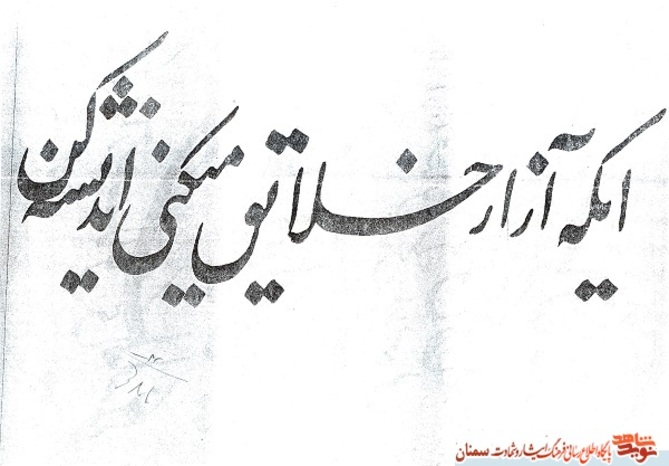 ایکه آزار خلایق میکنی اندیشه کن
نوید شاهد
پایگاه اطلاع رسانی فرهنگ ایثار و شهادت سمنان